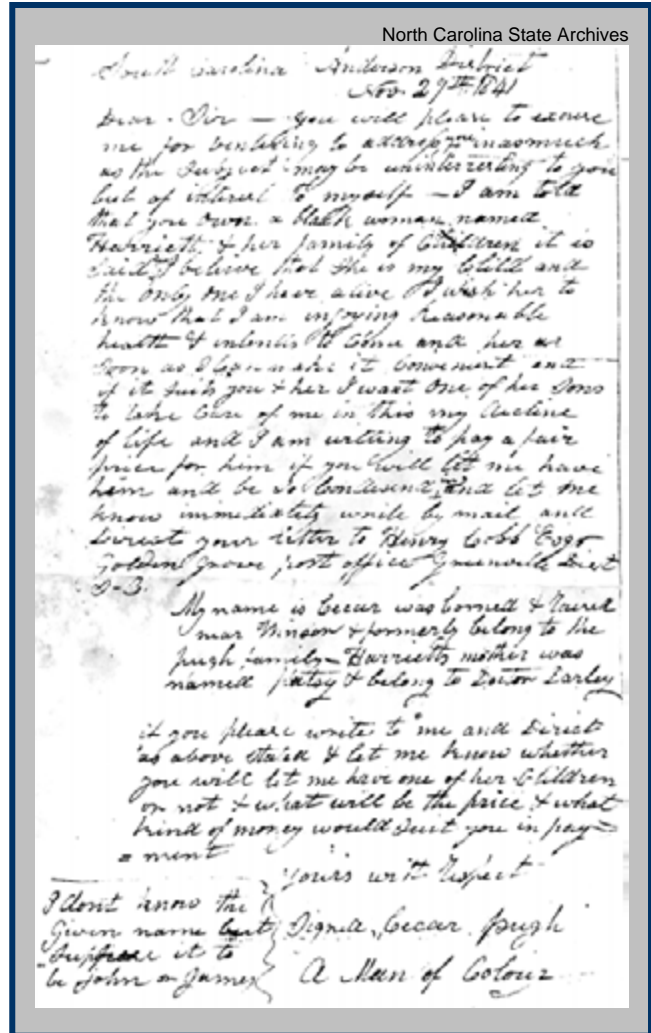 North Carolina State Archives
South Carolina Anderson District
Nov. 29th 1841
Dear Sir — you will please to excuse
me for venturing to address you inasmuch
as the Subject may be uninterresting to you
but of interest to myself — I am told
that you own a black woman named
Harriett & her family of Children it is
Said I believe that She is my Child and
the only one I have alive I wish her to
know that I am injoying reasonable
health & intends to Come and her as
Soon as I Can make it Convenient and
if it Suits you & her I want One of her Sons
to take Care of me in this my decline
of life and I am willing to pay a fair
price for him if you will let me have
him and be so and let me
know immediately write by mail and
Direct your letter to Henry Cobb Esqr
Golden Grove post office Greenville Dist
S-C.
My name is Cecar was borned & raised
near & formerly belong to the
pugh family — Harrietts mother was
named patsy & belong to Doctor
if you please write to me and Direct
as above stated & let me know whether
you will let me have one of her Children
or not & what will be the price & what
kind of money would Suit you in pay=
=ment
Yours with Respect
I dont know the
Given name but
Suppose it to
be John or James
Signed, Cecar pugh
A Man of Colour